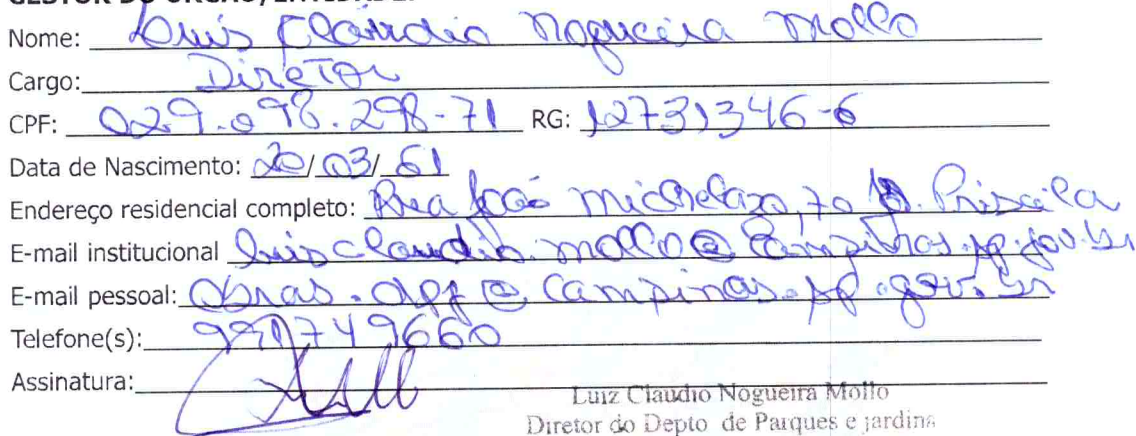 GESTOR DO ÓRGÃO/ENTIDADE:
Nome: Luis Claudio Nogueira Mollo
Cargo: Diretor
CPF: 029.098.298-71 RG: 12731346-6
Data de Nascimento: 20/03/61
Endereço residencial completo: Rua João Michelazo, 70 Priscila
E-mail institucional luisclaudio.mollo@campinas.sp.gov.br
E-mail pessoal: obras.dpj@campinas.sp.gov.br
Telefone(s): 991749660
Assinatura:
Luiz Claudio Nogueira Mollo
Diretor do Depto de Parques e jardins